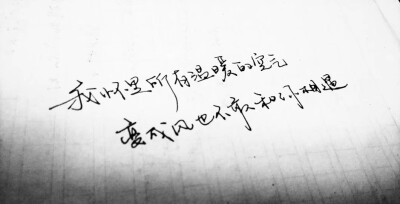 我怀里所有温暖的空气
变成风也不敢和你相遇